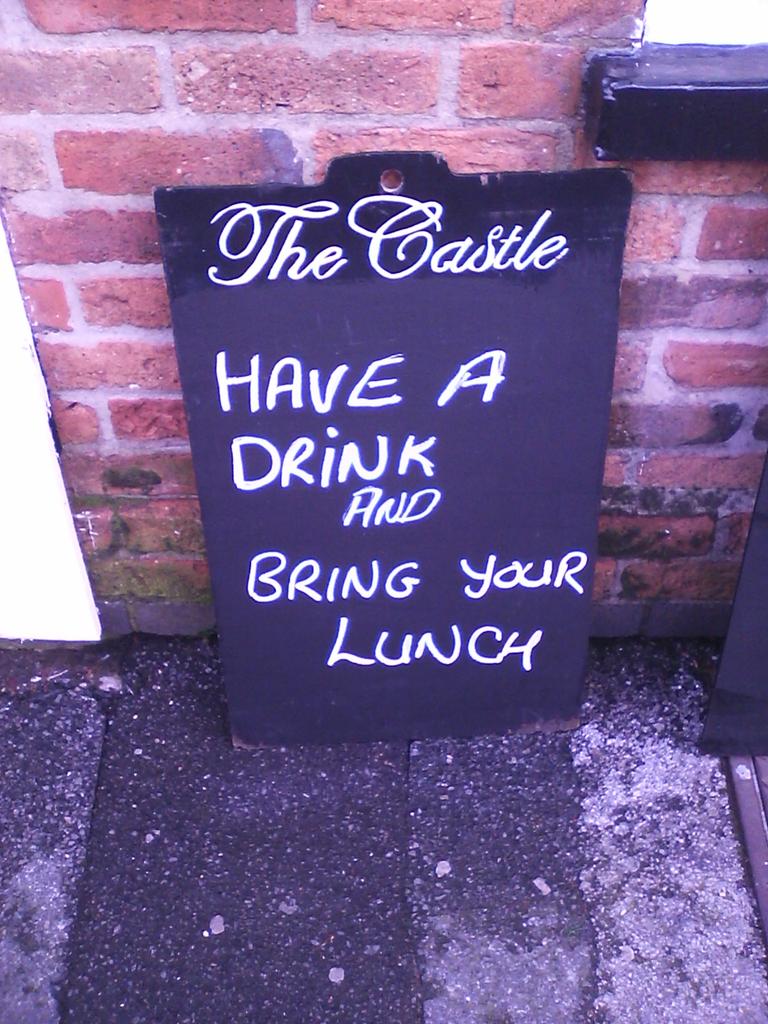 The Castle
HAVE A
DRiNK
AND
BRING YOUR
LUNCH